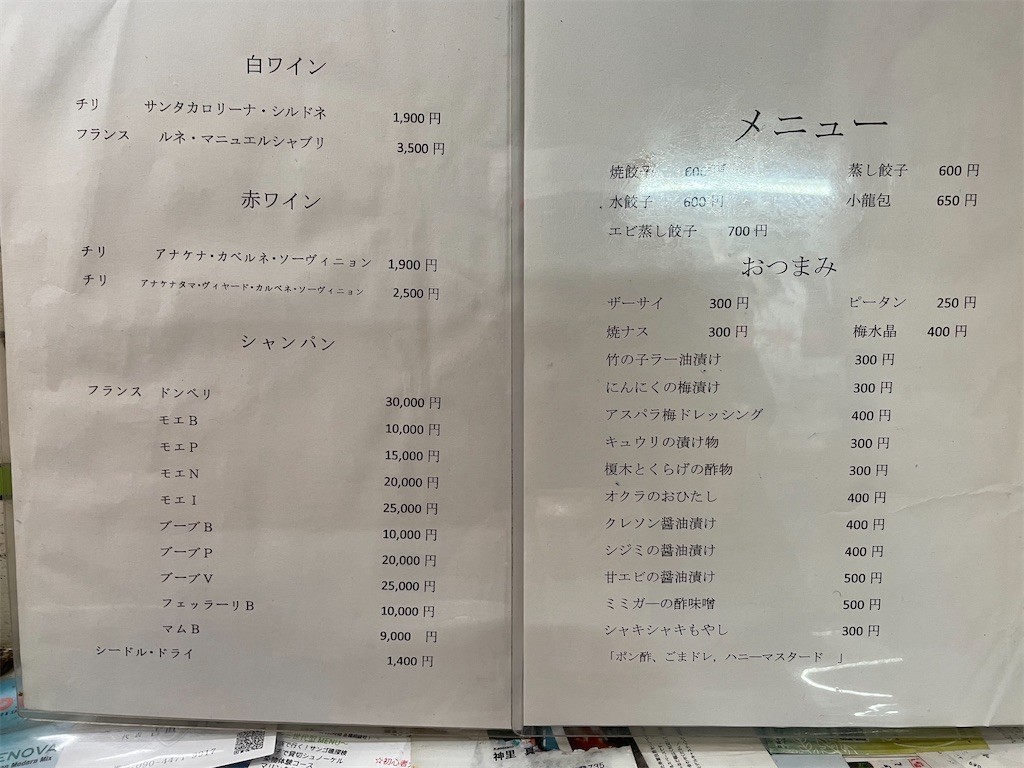 白ワイン
チリ サンタカロリーナ・シルドネ 1,900 円
フランス ルネ・マニュエルシャブリ 3,500 円
赤ワイン
チリ アナケナ・カベルネ・ソーヴィニョン 1,900 円
チリ アナケナタマ・ヴィヤード・カルベネ・ソーヴィニョン 2,500 円
シャンパン
フランス ドンペリ 30,000 円
モエB 10,000 円
モエP 15,000 円
モエN 20,000 円
モエI 25,000 円
ブーブB 10,000 円
ブーブP 20,000 円
ブーブV 25,000 円
フェッラーリB 10,000 円
マムB 9,000 円
シードル・ドライ 1,400 円
メニュー
焼餃子 600 円 蒸し餃子 600 円
水餃子 600 円 小龍包 650 円
エビ蒸し餃子 700 円
おつまみ
ザーサイ 300 円 ピータン 250 円
焼ナス 300 円 梅水晶 400 円
竹の子ラー油漬け 300 円
にんにくの梅漬け 300 円
アスパラ梅ドレッシング 400 円
キュウリの漬け物 300 円
榎木とくらげの酢物 300 円
オクラのおひたし 400 円
クレソン醤油漬け 400 円
シジミの醤油漬け 400 円
甘エビの醤油漬け 500 円
ミミガーの酢味噌 500 円
シャキシャキもやし 300 円
「ポン酢、ごまドレ，ハニーマスタード 」
ENOVA
Modern Mix
090-4471-2217
で貸切シュノーケル
☆初心者
神里